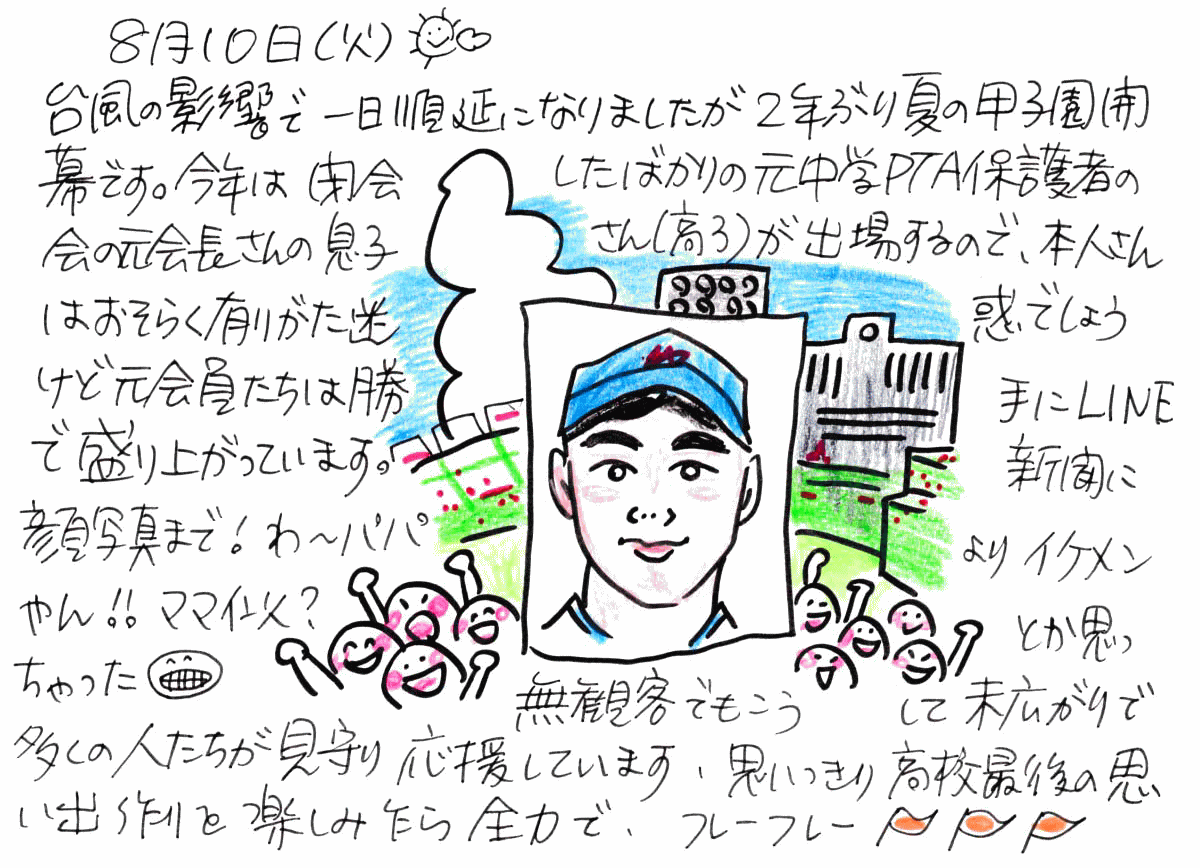 8月10日(火)
台風の影響で一日順延になりましたが2年ぶり夏の甲子園開
幕です。今年は閉会したばかりの元中学PTA保護者の
会の元会長さんの息子さん(高3)が出場するので、本人さん
はおそらく有りがた迷惑でしょう
けど元会員たちは勝手にLINE
で盛り上がっています。新聞に
顔写真まで!わ〜パパよりイケメン
やん!!ママ似?とか思っ
ちゃった 無観客でもこうして末広がりで
多くの人たちが見守り応援しています、思いっきり高校最後の思
い出作りを楽しみ乍ら全力で、フレーフレー